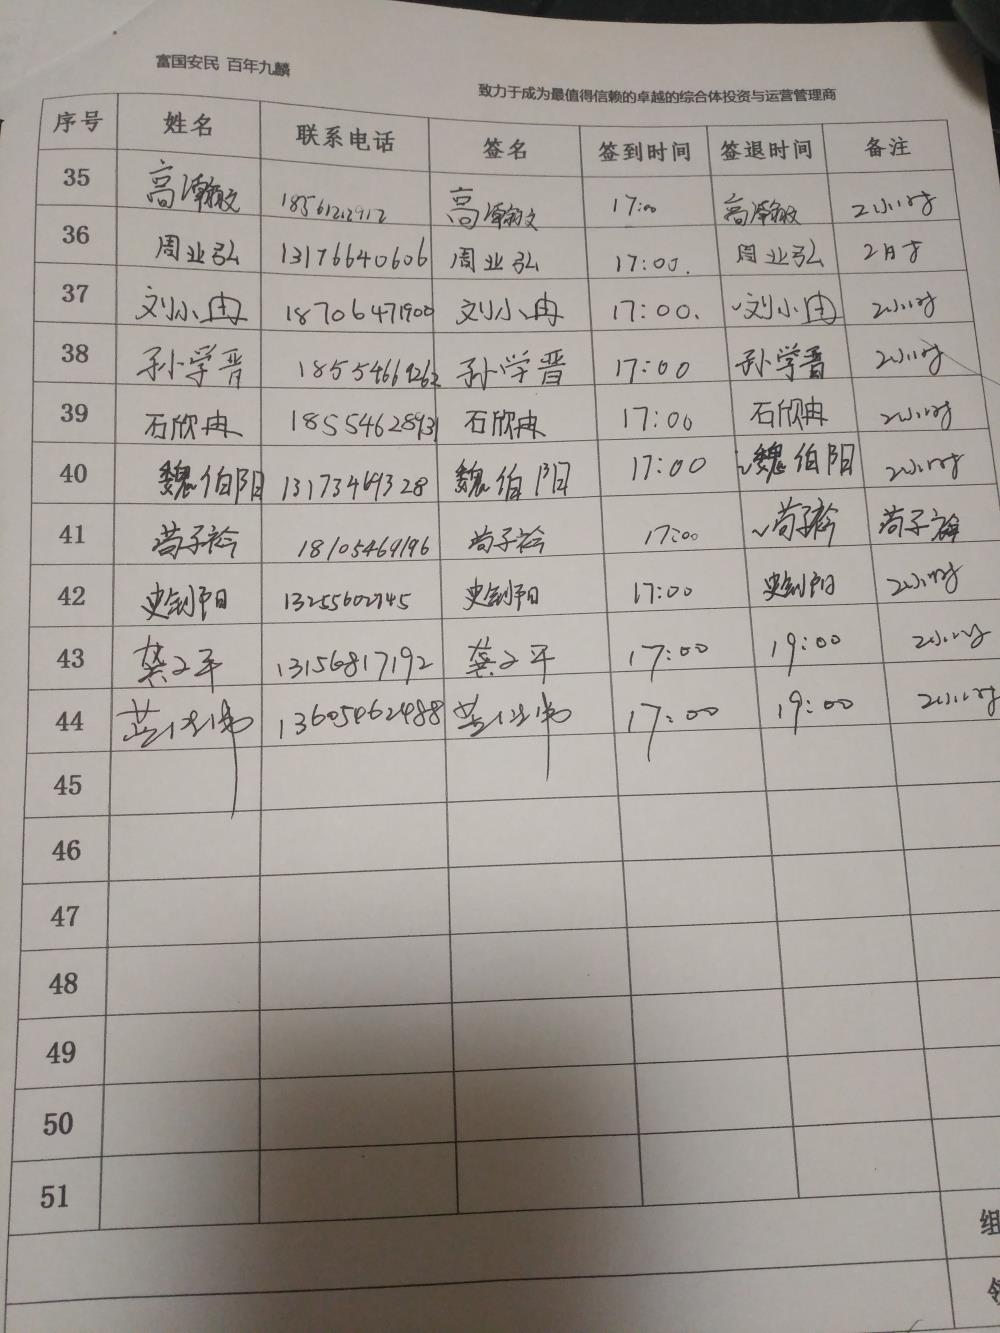 富国安民 百年九麟
致力于成为最值得信赖的卓越的综合体投资与运营管理商
序号 姓名 联系电话 签名 签到时间 签退时间 备注
35 高瀚敏 18561212912 高瀚敏 17:00 高瀚敏 2小时
36 周业弘 13176640606 周业弘 17:00. 周业弘 2月才
37 刘小冉 18706471900 刘小冉 17:00. 刘小冉 2小时
38 孙学晋 孙学晋 17:00 孙学晋 2小时
39 石欣冉 18554628931 石欣冉 17:00 石欣冉 2小时
40 魏伯阳 13173469328 魏伯阳 17:00 魏伯阳 2小时
41 18105469196 17:00
42 史剑阳 13255602745 史剑阳 17:00 史剑阳 2小时
43 龚之平 13156817192 龚之平 17:00 19:00 2小时
44 13605462488 17:00 19:00 2小时
45
46
47
48
49
50
51
组